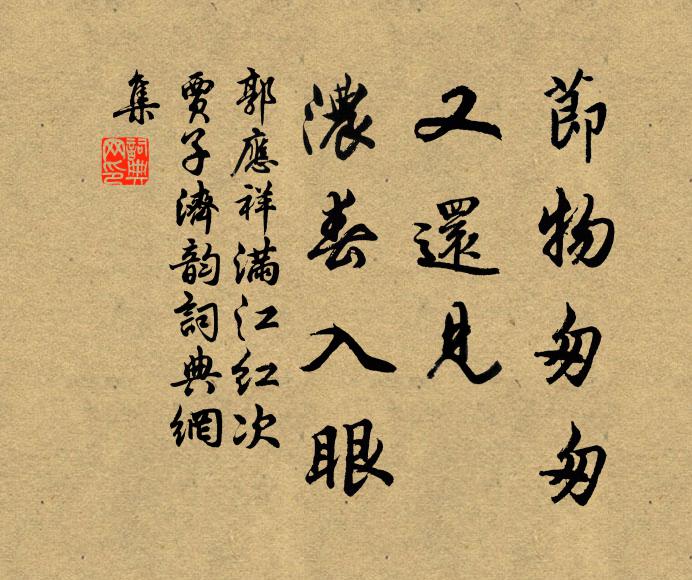 節物匆匆
又還見
濃春入眼
郭應祥滿江紅次
賈子濟韵詞典網
集
詞典網印